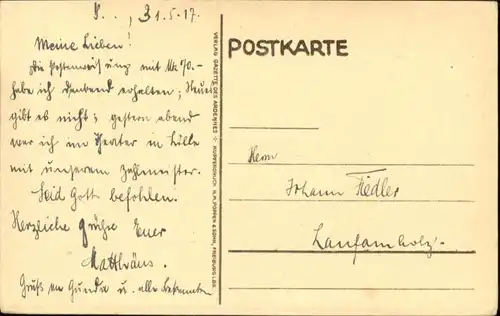 S.., 31.5.17.
Meine Lieben!
Die Postanweisung mit Mk 70.-
habe ich dankend erhalten; Neues
gibt es nicht; gestern abend
war ich im Theater in Lille
mit unserem Zahlmeister.
Seid Gott befohlen.
Herzliche Grüße Euer
Matthäus.
Gruß an Gunda u. alle Bekannten
VERLAG GAZETTE DES ARDENNES ÷ KUPFERDRUCK H.M.POPPEN & SOHN, FREIBURG I.BR.
POSTKARTE
Herrn
Johann Fiedler
Laufamholz.